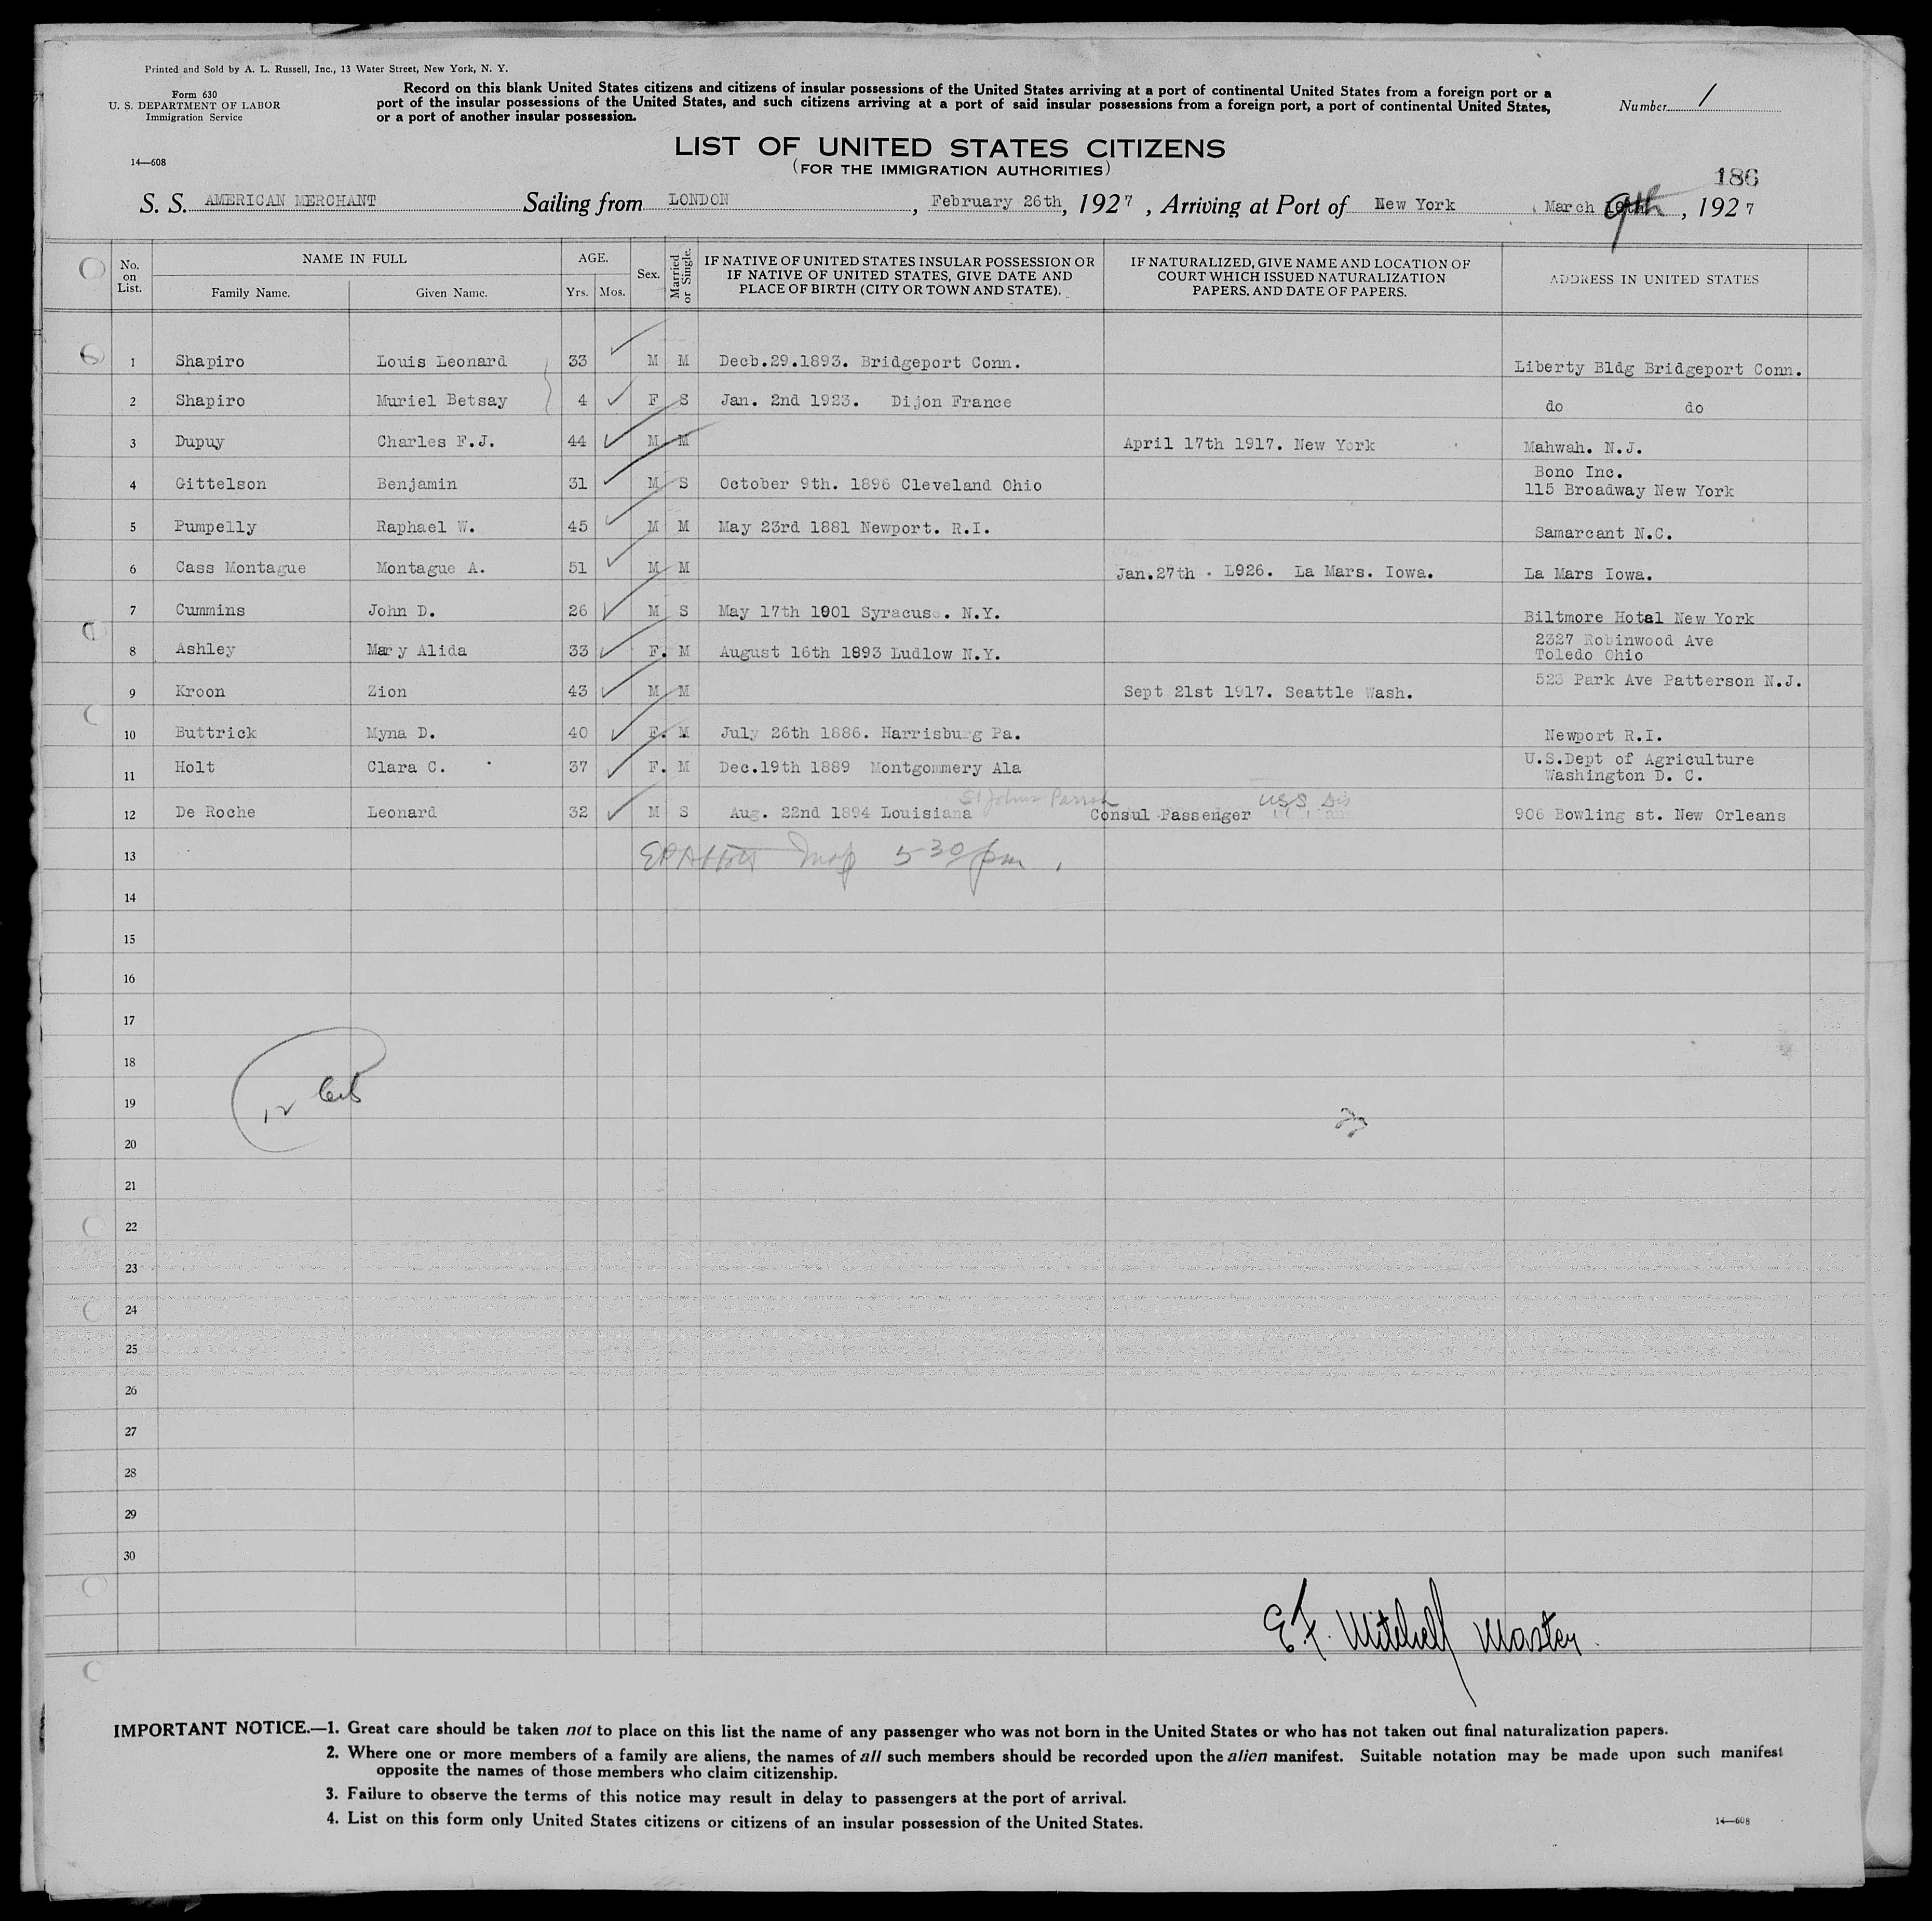 Printed and Sold by A. L. Russell, Inc., 13 Water Street, New York, N. Y.
Form 630
U. S. DEPARTMENT OF LABOR
Immigration Service
14—608
Record on this blank United States citizens and citizens of insular possessions of the United States arriving at a port of continental United States from a foreign port or a
port of the insular possessions of the United States, and such citizens arriving at a port of said insular possessions from a foreign port, a port of continental United States,
or a port of another insular possession.
Number 1
LIST OF UNITED STATES CITIZENS
(FOR THE IMMIGRATION AUTHORITIES)
186
S. S. AMERICAN MERCHANT Sailing from LONDON, February 26th, 1927, Arriving at Port of New York, March 9th, 1927
No. on List. NAME IN FULL AGE. Sex. Married or Single. IF NATIVE OF UNITED STATES INSULAR POSSESSION OR IF NATIVE OF UNITED STATES, GIVE DATE AND PLACE OF BIRTH (CITY OR TOWN AND STATE). IF NATURALIZED, GIVE NAME AND LOCATION OF COURT WHICH ISSUED NATURALIZATION PAPERS, AND DATE OF PAPERS. ADDRESS IN UNITED STATES
Family Name. Given Name. Yrs. Mos.
1 Shapiro Louis Leonard 33 M M Decb.29.1893. Bridgeport Conn. Liberty Bldg Bridgeport Conn.
2 Shapiro Muriel Betsay 4 F S Jan. 2nd 1923. Dijon France do do
3 Dupuy Charles F.J. 44 M M April 17th 1917. New York Mahwah. N.J.
4 Gittelson Benjamin 31 M S October 9th. 1896 Cleveland Ohio Bono Inc.
115 Broadway New York
5 Pumpelly Raphael W. 45 M M May 23rd 1881 Newport. R.I. Samarcant N.C.
6 Cass Montague Montague A. 51 M M Jan.27th . L926. La Mars. Iowa. La Mars Iowa.
7 Cummins John D. 26 M S May 17th 1901 Syracuse. N.Y. Biltmore Hotal New York
8 Ashley Mary Alida 33 F. M August 16th 1893 Ludlow N.Y. 2327 Robinwood Ave
Toledo Ohio
9 Kroon Zion 43 M M Sept 21st 1917. Seattle Wash. 523 Park Ave Patterson N.J.
10 Buttrick Myna D. 40 F. M July 26th 1886. Harrisburg Pa. Newport R.I.
11 Holt Clara C. 37 F. M Dec.19th 1889 Montgommery Ala U.S.Dept of Agriculture
Washington D. C.
St Johns Parrish
12 De Roche Leonard 32 M S Aug. 22nd 1894 Louisiana Consul Passenger 906 Bowling st. New Orleans
13 5 30 pm
14
15
16
17
18
19
12
20
21
22
23
24
25
26
27
28
29
30
E.F. Mitchell Master
IMPORTANT NOTICE.—1. Great care should be taken not to place on this list the name of any passenger who was not born in the United States or who has not taken out final naturalization papers.
2. Where one or more members of a family are aliens, the names of all such members should be recorded upon the alien manifest. Suitable notation may be made upon such manifest
opposite the names of those members who claim citizenship.
3. Failure to observe the terms of this notice may result in delay to passengers at the port of arrival.
4. List on this form only United States citizens or citizens of an insular possession of the United States.
14—608